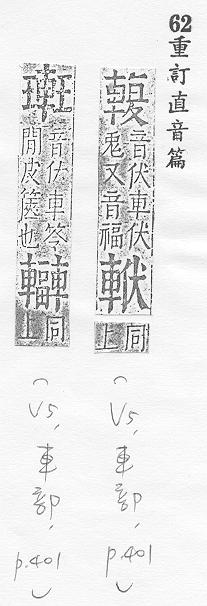 62重訂直音篇
輹
音伏車伏
兎又音福
同上
（V5，車部，p.401）
音伏車笭
間皮篋也
同上
（V5，車部，p.401）